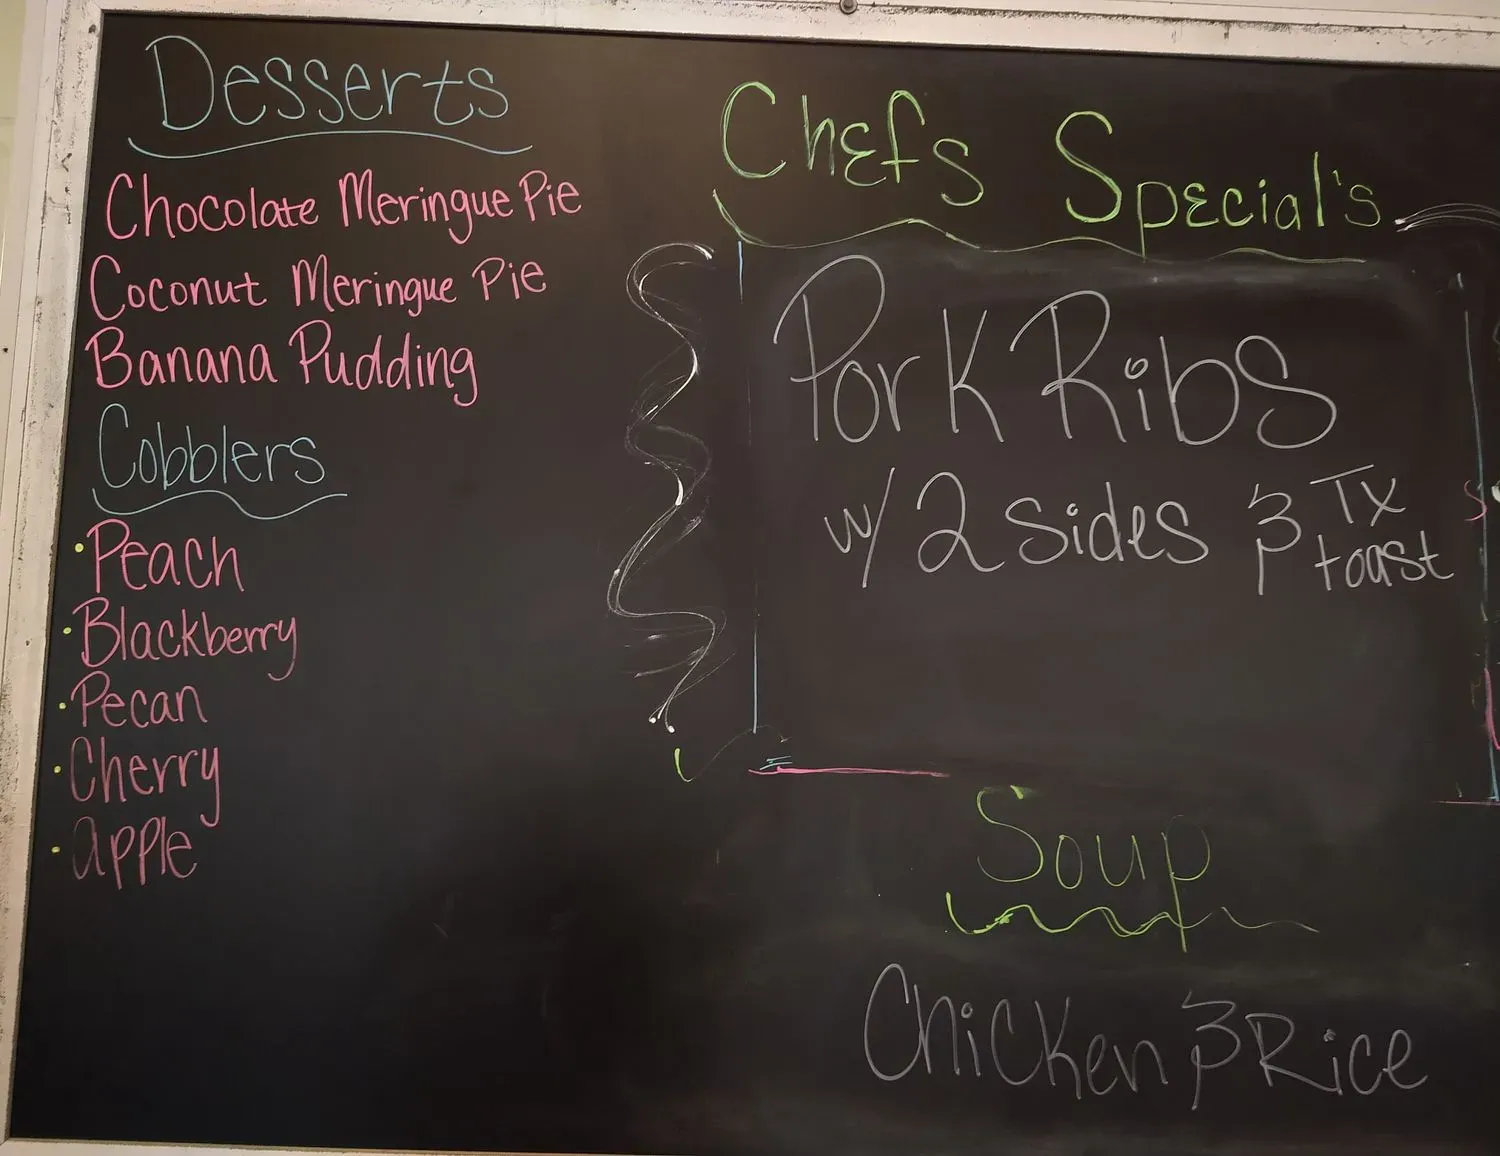 Desserts
Chocolate Meringue Pie
Coconut Meringue Pie
Banana Pudding
Cobblers
• Peach
• Blackberry
• Pecan
• Cherry
• apple
Chefs Special's
Pork Ribs
w/ 2 sides & TX
toast
Soup
Chicken & Rice